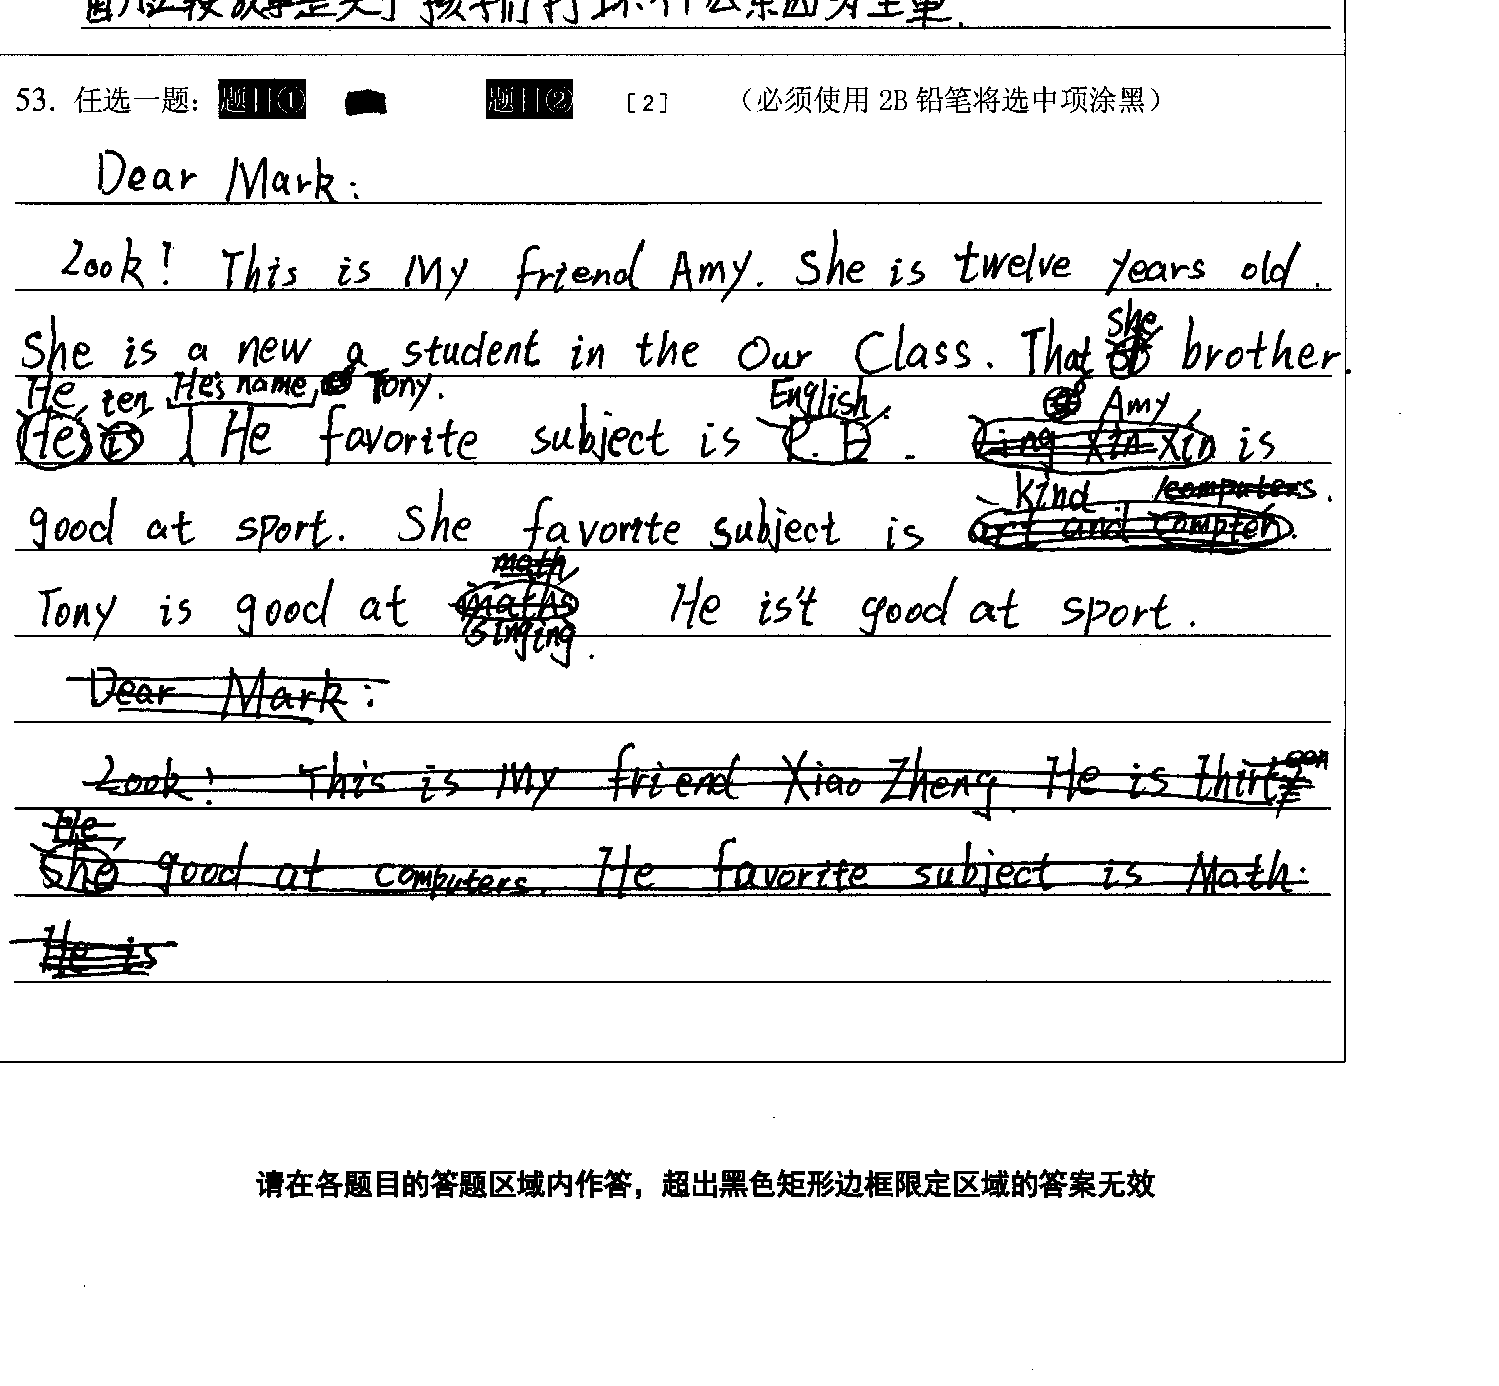 53. 任选一题: 题目① 题目② [2] (必须使用 2B 铅笔将选中项涂黑)
Dear Mark:
Look! This is My friend Amy. She is twelve years old.
She is a new student in the Our Class. That she brother.
He ten He's name, Tony. He favorite subject is English. Amy is
good at sport. She favorite subject is kind.
Tony is good at singing. He is't good at sport.
Dear Mark:
Look! This is My friend Xiao Zheng. He is thirteen
He good at computers. He favorite subject is Math.
He is
请在各题目的答题区域内作答，超出黑色矩形边框限定区域的答案无效